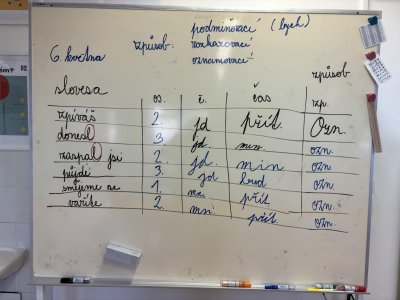 6. května způsob: podmiňovací (bych)
rozkazovací
oznamovací
způsob
slovesa os. č. čas zp.
zpíváš 2. jd přít. Ozn.
donesl 3. jd. min. ozn.
zaspal jsi 2. jd. min ozn.
půjdi 3. jd bud ozn.
smějeme se 1. mn. přít ozn.
vaříte 2. mn. přít ozn.